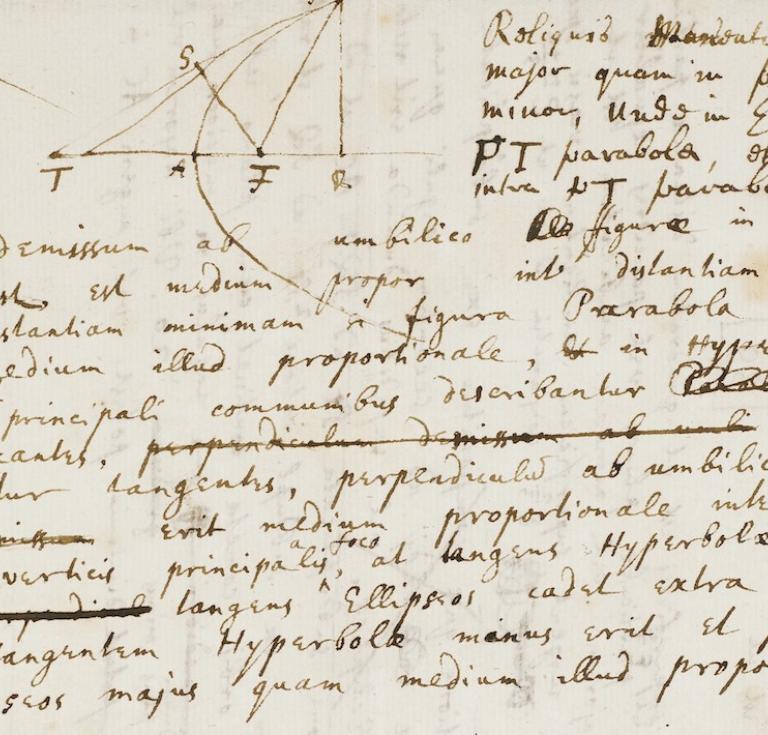 S
T A F R
Reliquis
major quam in
minor, Unde in
PT parabola,
intra PT parab
demisssum ab umbilico figuræ in
est, est medium propor int distantiam
stantiam minimam si figura Parabola
edium illud proportionale, & in Hype
principali communibus describantur
cantes, perpendiculum demissum ab umbi
tur tangentes, perpendiculū ab umbilic
missum erit medium proportionale inte
verticis principalis, a foco at tangens Hyperbolæ
tangens Ellipseos cadet extra
tangentem Hyperbolæ minus erit et
seos majus quam medium illud propo